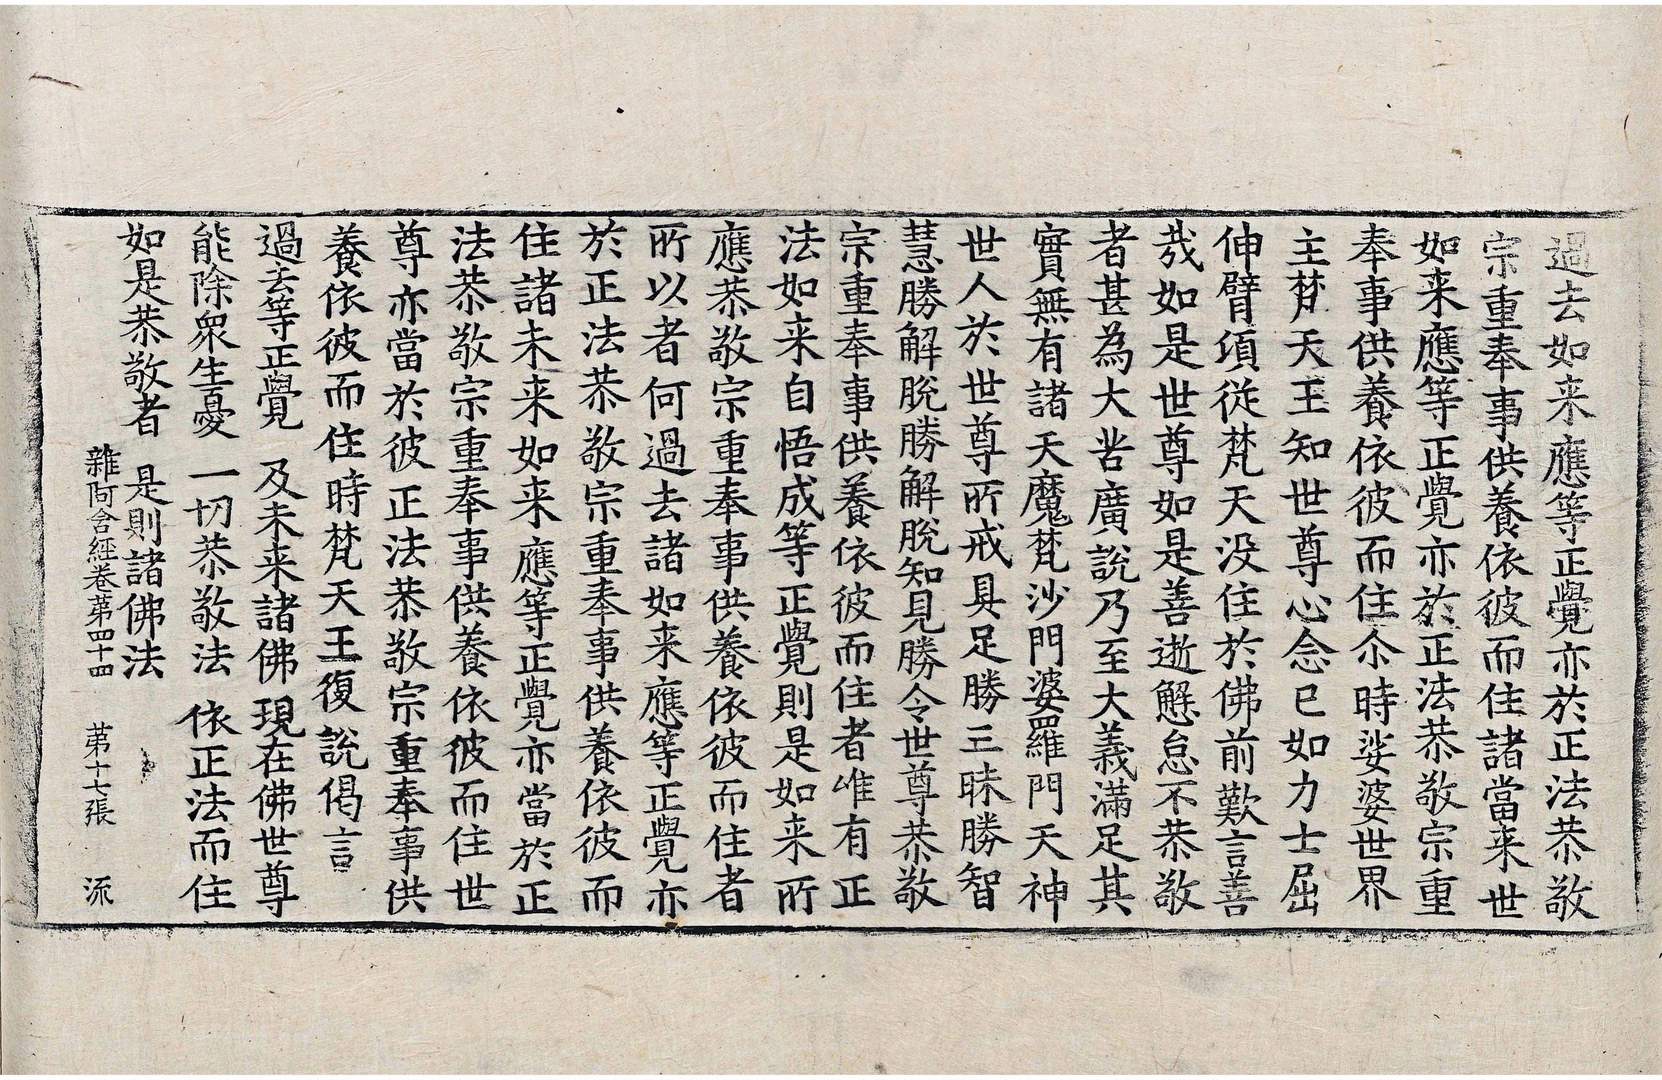 過去如来應等正覺亦於正法恭敬
宗重奉事供養依彼而住諸當来世
如来應等正覺亦於正法恭敬宗重
奉事供養依彼而住尒時娑婆世界
主梵天王知世尊心念已如力士屈
伸臂頃從梵天没住於佛前歎言善
㢤如是世尊如是善逝懈怠不恭敬
者甚為大苦廣說乃至大義滿足其
實無有諸天魔梵沙門婆羅門天神
世人於世尊所戒具足勝三昧勝智
慧勝解脫勝解脫知見勝令世尊恭敬
宗重奉事供養依彼而住者唯有正
法如来自悟成等正覺則是如来所
應恭敬宗重奉事供養依彼而住者
所以者何過去諸如来應等正覺亦
於正法恭敬宗重奉事供養依彼而
住諸未来如来應等正覺亦當於正
法恭敬宗重奉事供養依彼而住世
尊亦當於彼正法恭敬宗重奉事供
養依彼而住時梵天王復說偈言
過去等正覺 及未来諸佛 現在佛世尊
能除衆生憂 一切恭敬法 依正法而住
如是恭敬者 是則諸佛法
雜阿含經卷苐四十四 苐十七張 流